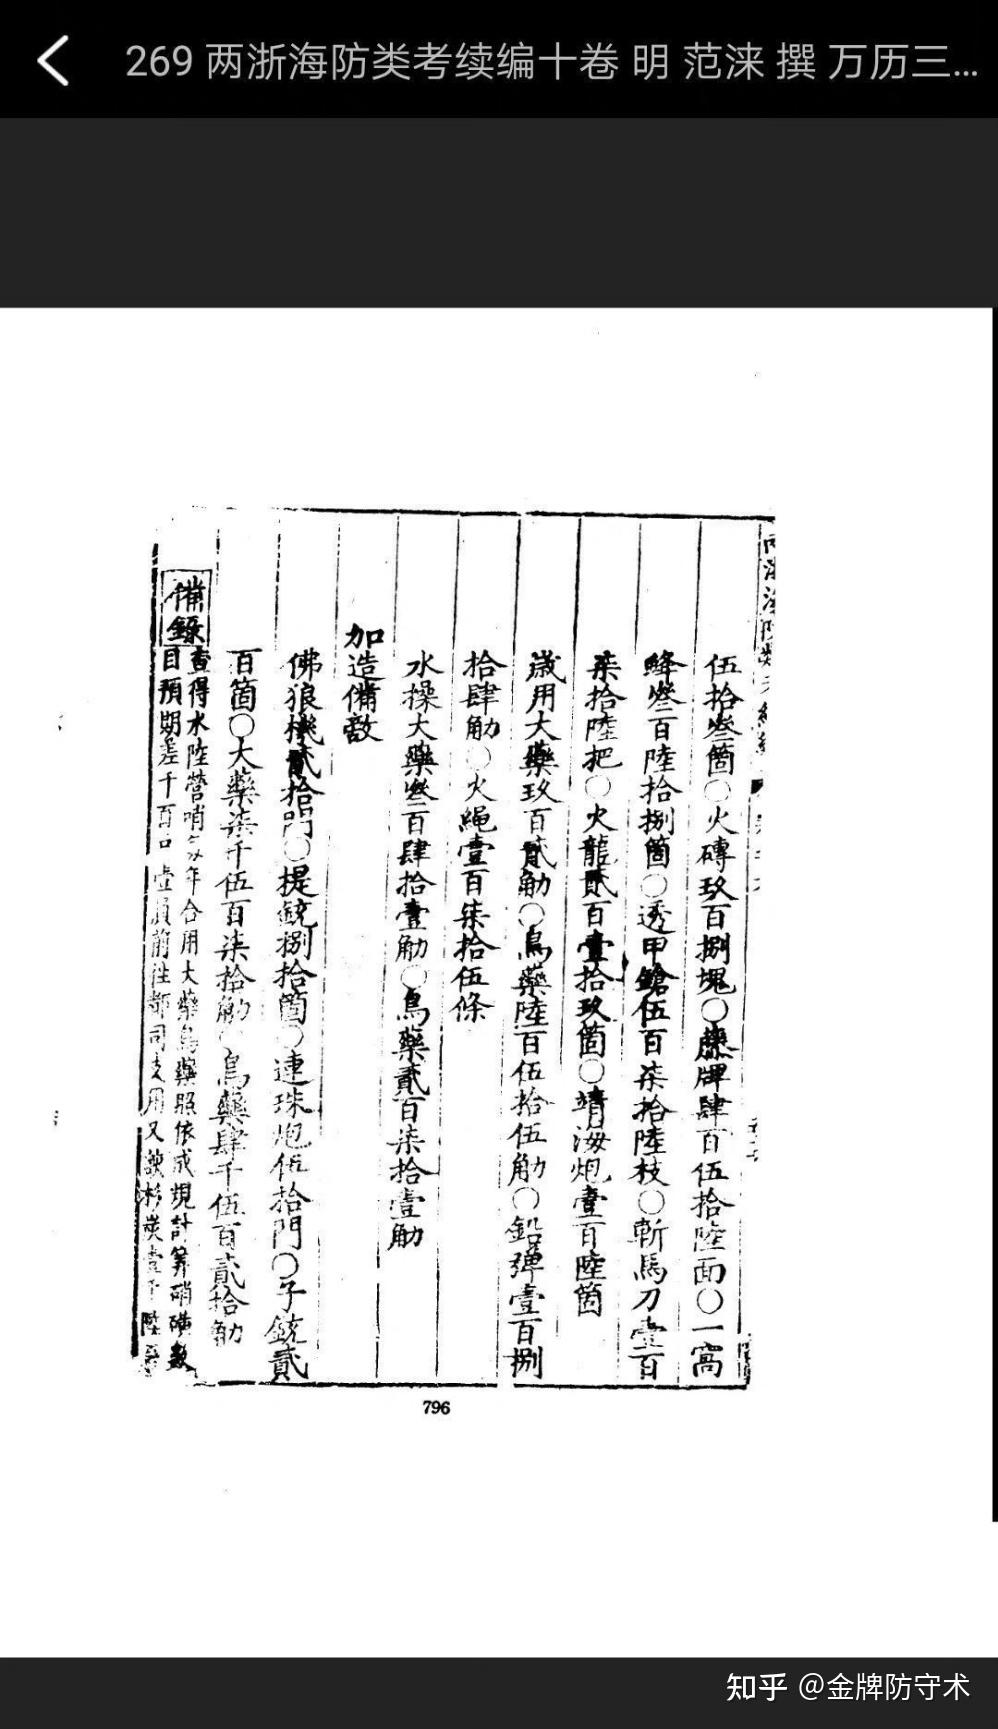 269 两浙海防类考续编十卷 明 范涞 撰 万历三...
伍拾叁箇○火磚玖百捌塊○藤牌肆百伍拾陸面○一窩
蜂叁百陸拾捌箇○透甲鎗伍百柒拾陸枝○斬馬刀壹百
柒拾陸把○火龍貳百壹拾玖箇○靖海炮壹百陸箇
歲用大藥玖百貳觔○鳥藥陸百伍拾伍觔○鉛彈壹百捌
拾肆觔○火繩壹百柒拾伍條
水操大藥叁百肆拾壹觔○鳥藥貳百柒拾壹觔
加造備敵
佛狼機貳拾門○提銃捌拾箇○連珠炮伍拾門○子銃貳
百箇○大藥柒千伍百柒拾觔○鳥藥肆千伍百貳拾觔
備錄
查得水陸營哨每年合用大藥鳥藥照依成規計算硝磺數
目預期差千百户壹員前往都司支用又歇杉炭壹千陸
796
知乎 @金牌防守术